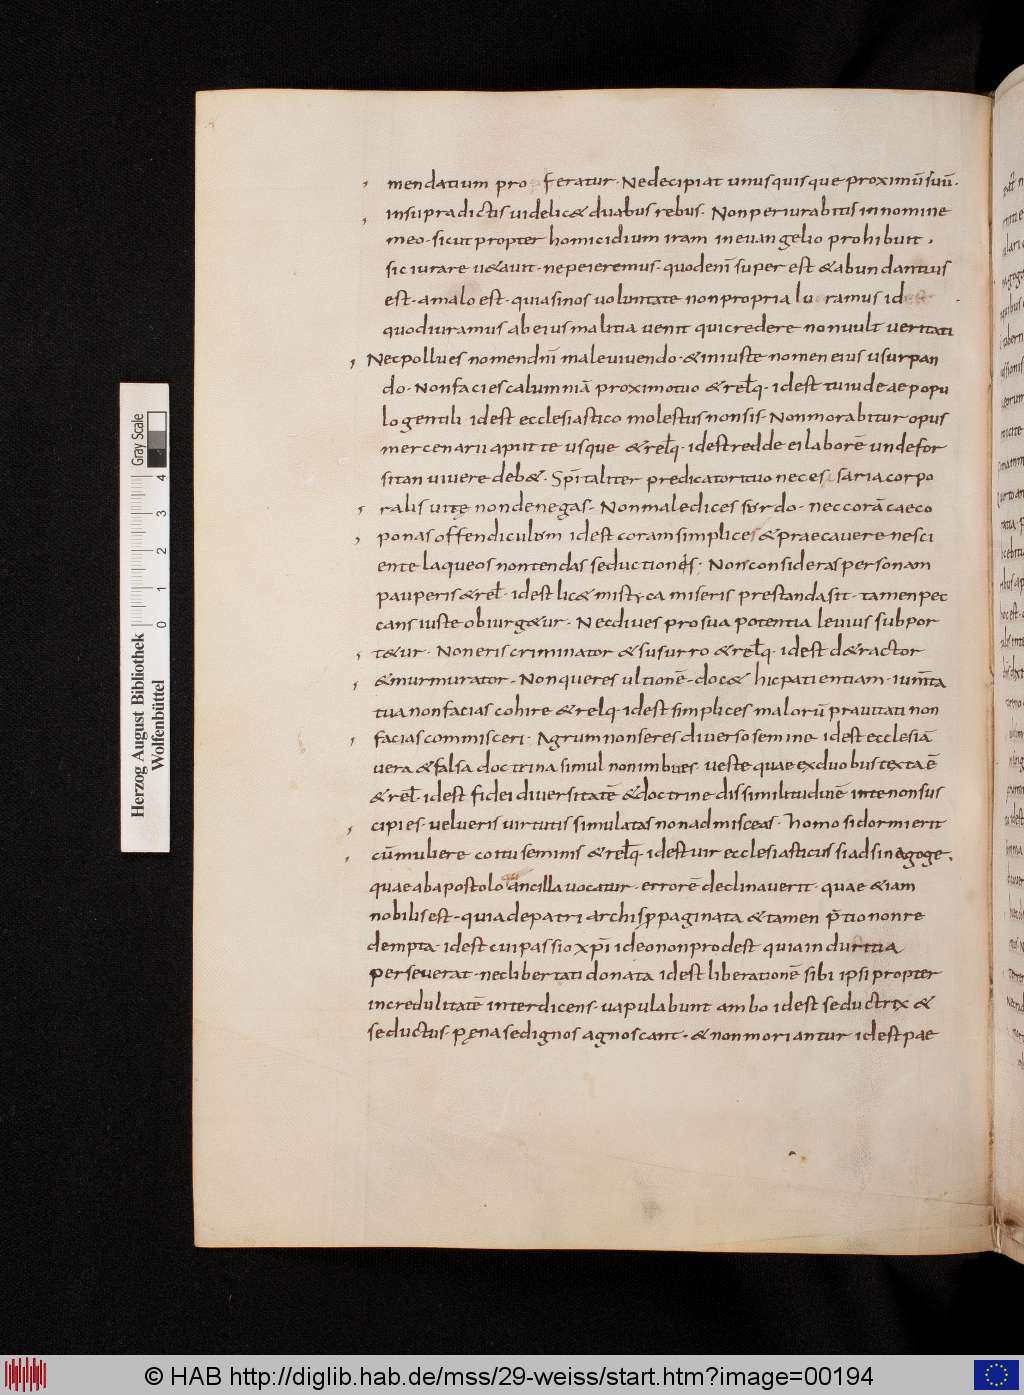 mendatium pro feratur · Ne decipiat unusquisque proximū suū ·
in supradictis uidelic& duabus rebus · Non periurabitis in nomine
meo · sicut propter homicidium iram in euangelio prohibuit ,
sic iurare u&auit · ne peieremus · quod eni̅ super est & abundantius
est · a malo est · quia si nos uoluntate non propria iu ramus id
quod iuramus ab eius malitia uenit qui credere non uult ueritati
Nec pollues nomen dn̅i male uiuendo · & iniuste nomen eius usurpan
do · Non facies calumniā proximo tuo & rel̅q · id est tu iudeae popu
lo gentili id est ecclesiastico molestus non sis · Non morabitur opus
mercenarii aput te usque & rel̅q · id est redde ei laborē unde for
sitan uiuere deb& · Sp̅italiter predicatori tuo neces saria corpo
ralis uitę non denegas · Non maledices surdo · nec corā caeco
ponas offendiculum id est coram simplices & praecauere nesci
ente laqueos non tendas seductionis · Non consideras personam
pauperis & rel̅ · id est lic& mistyca miseris prestanda sit · tamen pec
cans iuste obiurg&ur · Nec diues pro sua potentia leuius subpor
t&ur · Non eris criminator & susurro & rel̅q · id est d&ractor
& murmurator · Non queres ultionē · doc& hic patientiam · ium̅ta
tua non facias cohire & relq · id est simplices malorū prauitati non
facias commisceri · Agrum non seres diuerso semine id est ecclesiā
uera & falsa doctrina simul non imbues ueste quae ex duobus texta ē
& rel̅ · id est fidei diuersitatē & doctrine dissimilitudinē in te non sus
cipies · uel ueris uirtutis simulatas non admisceas · homo si dormierit
cū muliere coitu seminis & rel̅q · id est uir ecclesiasticus si ad sinagoge ,
quae ab apostolo ancilla uocatur · errorē declinauerit · quae & iam
nobilis est · quia de patri archis p̱paginata & tamen p̅tio non re
dempta · id est cui passio xp̅i ideo non prodest quia in duritia
perseuerat · nec libertati donata id est liberationē sibi ipsi propter
incredulitatē interdicens · uapulabunt ambo id est seductrix &
seductus · pęna se dignos agnoscant · & non moriantur id est pae
Herzog August Bibliothek
Wolfenbüttel
0 1 2 3 4
Gray Scale
© HAB http://diglib.hab.de/mss/29-weiss/start.htm?image=00194